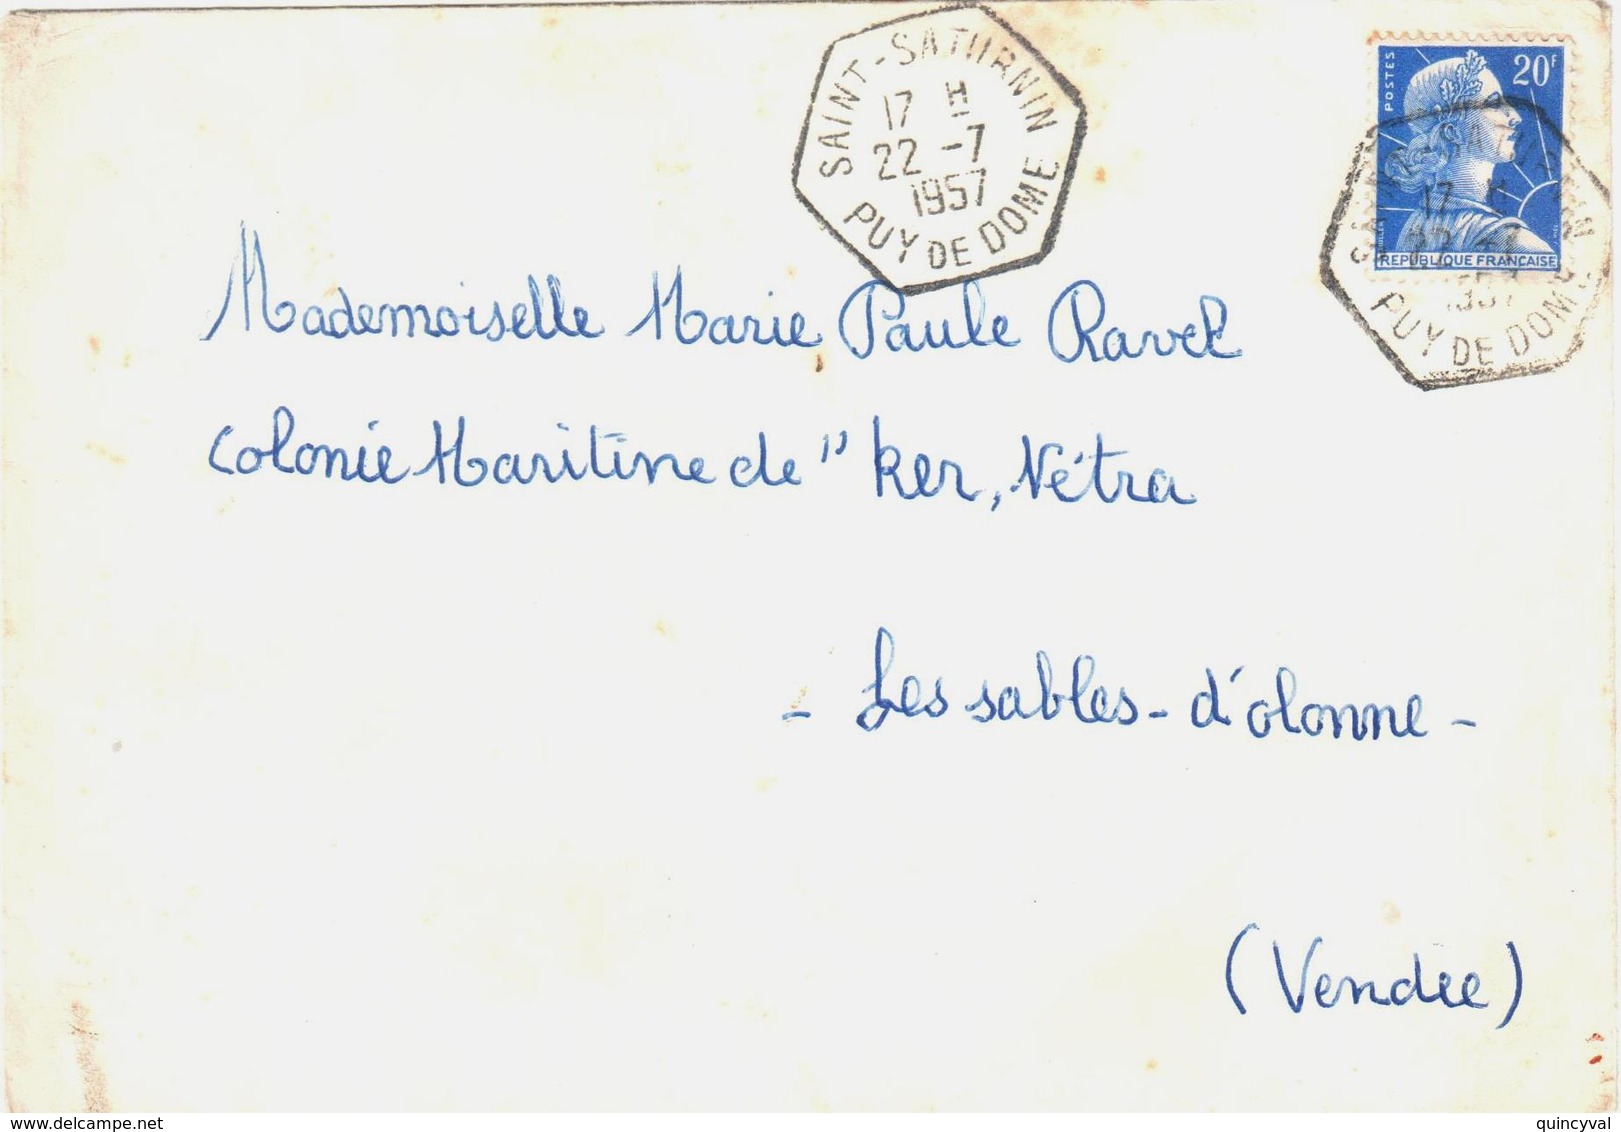 SAINT-SATURNIN
17 H
22 -7
1957
PUY DE DOME
POSTES
20F
REPUBLIQUE FRANÇAISE
17 H
PUY DE DOME
Mademoiselle Marie Paule Ravel
Colonie Maritime de " Ker, Nétra
- Les sables - d'olonne -
(Vendee)
delcampe.net
quincyval